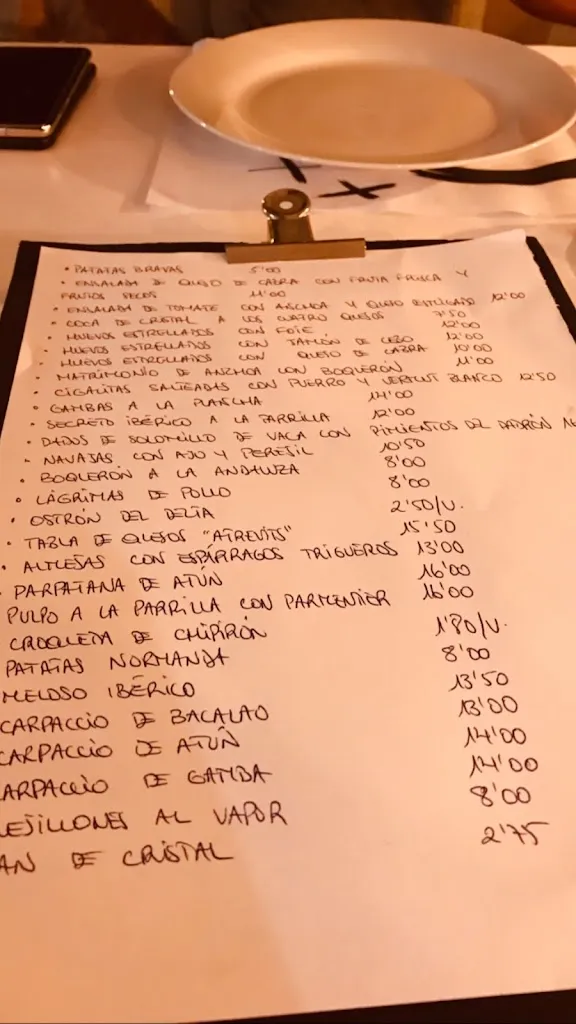 • PATATAS BRAVAS 5'00
• ENSALADA DE QUESO DE CABRA CON FRUTA FRESCA Y
FRUTOS SECOS 11'00
• ENSALADA DE TOMATE CON ANCHOA Y QUESO ESTILIZADO 12'00
• COCA DE CRISTAL A LOS CUATRO QUESOS 7'50
• HUEVOS ESTRELLADOS CON FOIE 12'00
• HUEVOS ESTRELLADOS CON JAMÓN DE CEBO 12'00
• HUEVOS ESTRELLADOS CON QUESO DE CABRA 10'00
• MATRIMONIO DE ANCHOA CON BOQUERÓN 11'00
• CIGALITAS SALTEADAS CON PUERRO Y VERMUT BLANCO 12'50
• GAMBAS A LA PLANCHA 14'00
• SECRETO IBÉRICO A LA PARRILLA 12'00
• DADOS DE SOLOMILLO DE VACA CON PIMIENTOS DE PADRÓN
• NAVAJAS CON AJO Y PEREJIL 10'50
• BOQUERÓN A LA ANDALUZA 8'00
• LÁGRIMAS DE POLLO 8'00
• OSTRÓN DEL DELTA 2'50/U.
• TABLA DE QUESOS "ATREVITS" 15'50
• ALMEJAS CON ESPÁRRAGOS TRIGUEROS 13'00
• PARPATANA DE ATÚN 16'00
PULPO A LA PARRILLA CON PARMENTIER 16'00
CROQUETA DE CHIPIRÓN 1'80/U.
PATATAS NORMANDA 8'00
MELOSO IBÉRICO 13'50
CARPACCIO DE BACALAO 13'00
CARPACCIO DE ATÚN 14'00
ARPACCIO DE GAMBA 14'00
EJILLONES AL VAPOR 8'00
AN DE CRISTAL 2'75